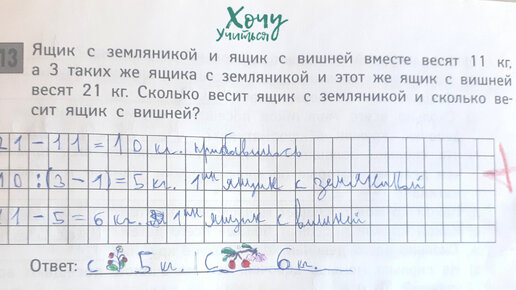 Хочу
Учиться
13 Ящик с земляникой и ящик с вишней вместе весят 11 кг,
а 3 таких же ящика с земляникой и этот же ящик с вишней
весят 21 кг. Сколько весит ящик с земляникой и сколько ве-
сит ящик с вишней?
21-11=10 кг. прибавилось
10:(3-1)=5 кг. 1ин ящик с земляникой
11-5=6 кг. 1ин ящик с вишней
Ответ: с 5 кг. | С 6 кг.